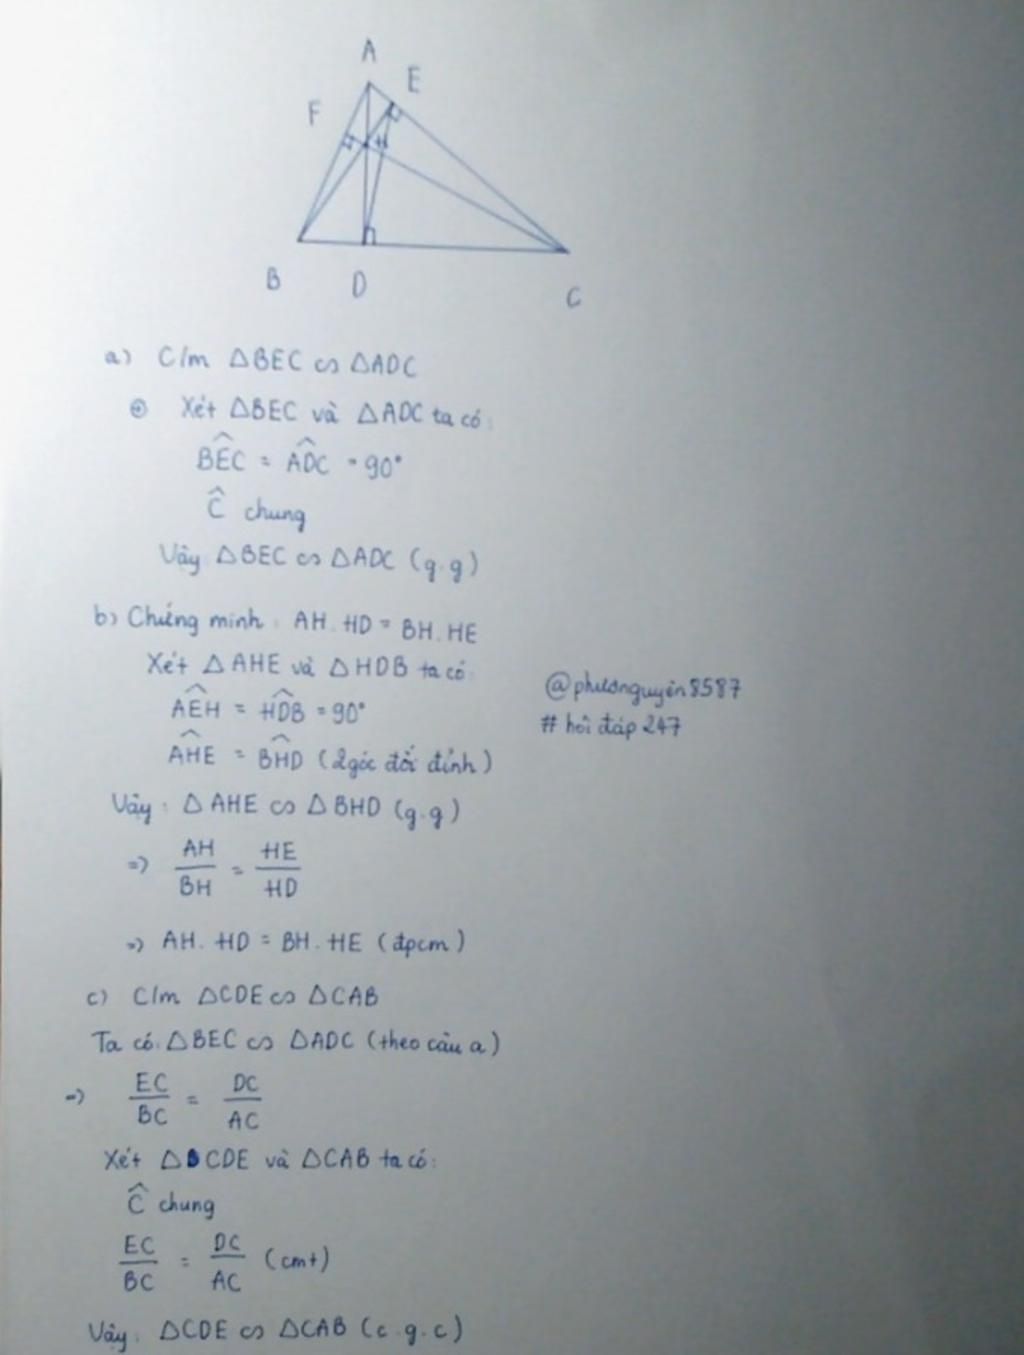 A
E
F
H
B
D
C
a) C/m ΔBEC ∽ ΔADC
Xét ΔBEC và ΔADC ta có:
BÊC = ADC = 90°
Ĉ chung
Vậy: ΔBEC ∽ ΔADC (g.g)
b) Chứng minh: AH.HD = BH.HE
Xét ΔAHE và ΔHDB ta có:
AEH = HDB = 90°
AHE = BHD (2 góc đối đỉnh)
Vậy: ΔAHE ∽ ΔBHD (g.g)
=> AH/BH = HE/HD
=> AH.HD = BH.HE (đpcm)
@phuonguyen8587
# hỏi đáp 247
c) C/m ΔCDE ∽ ΔCAB
Ta có: ΔBEC ∽ ΔADC (theo câu a)
=> EC/BC = DC/AC
Xét ΔCDE và ΔCAB ta có:
Ĉ chung
EC/BC = DC/AC (cmt)
Vậy: ΔCDE ∽ ΔCAB (c.g.c)